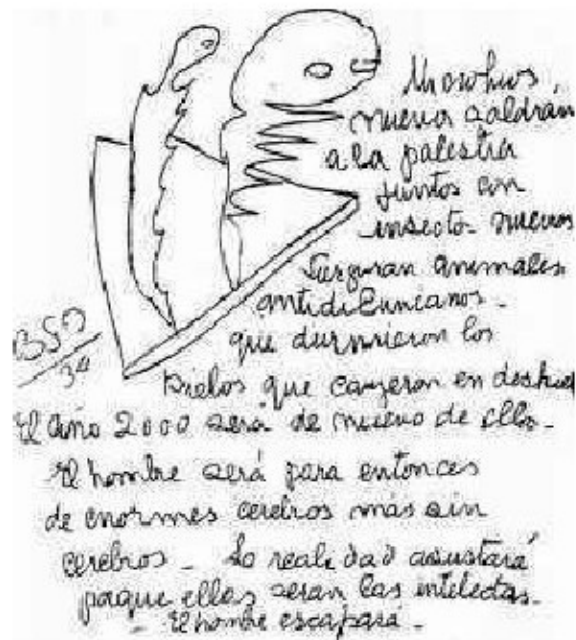 nuevos saldrán
a la palestra
juntos con
insecto- nuevos
Surguran animales
antidiluvianos-
que durmieron los
BSO
34
Dielos que cayeron en deshiel
El año 2000 será de nuevo de ellos-
El hombre será para entonces
de enormes cerebros más sin
cerebros- La realidad asustará
porque ellas seran las intelectas-
- El hombre escapará-